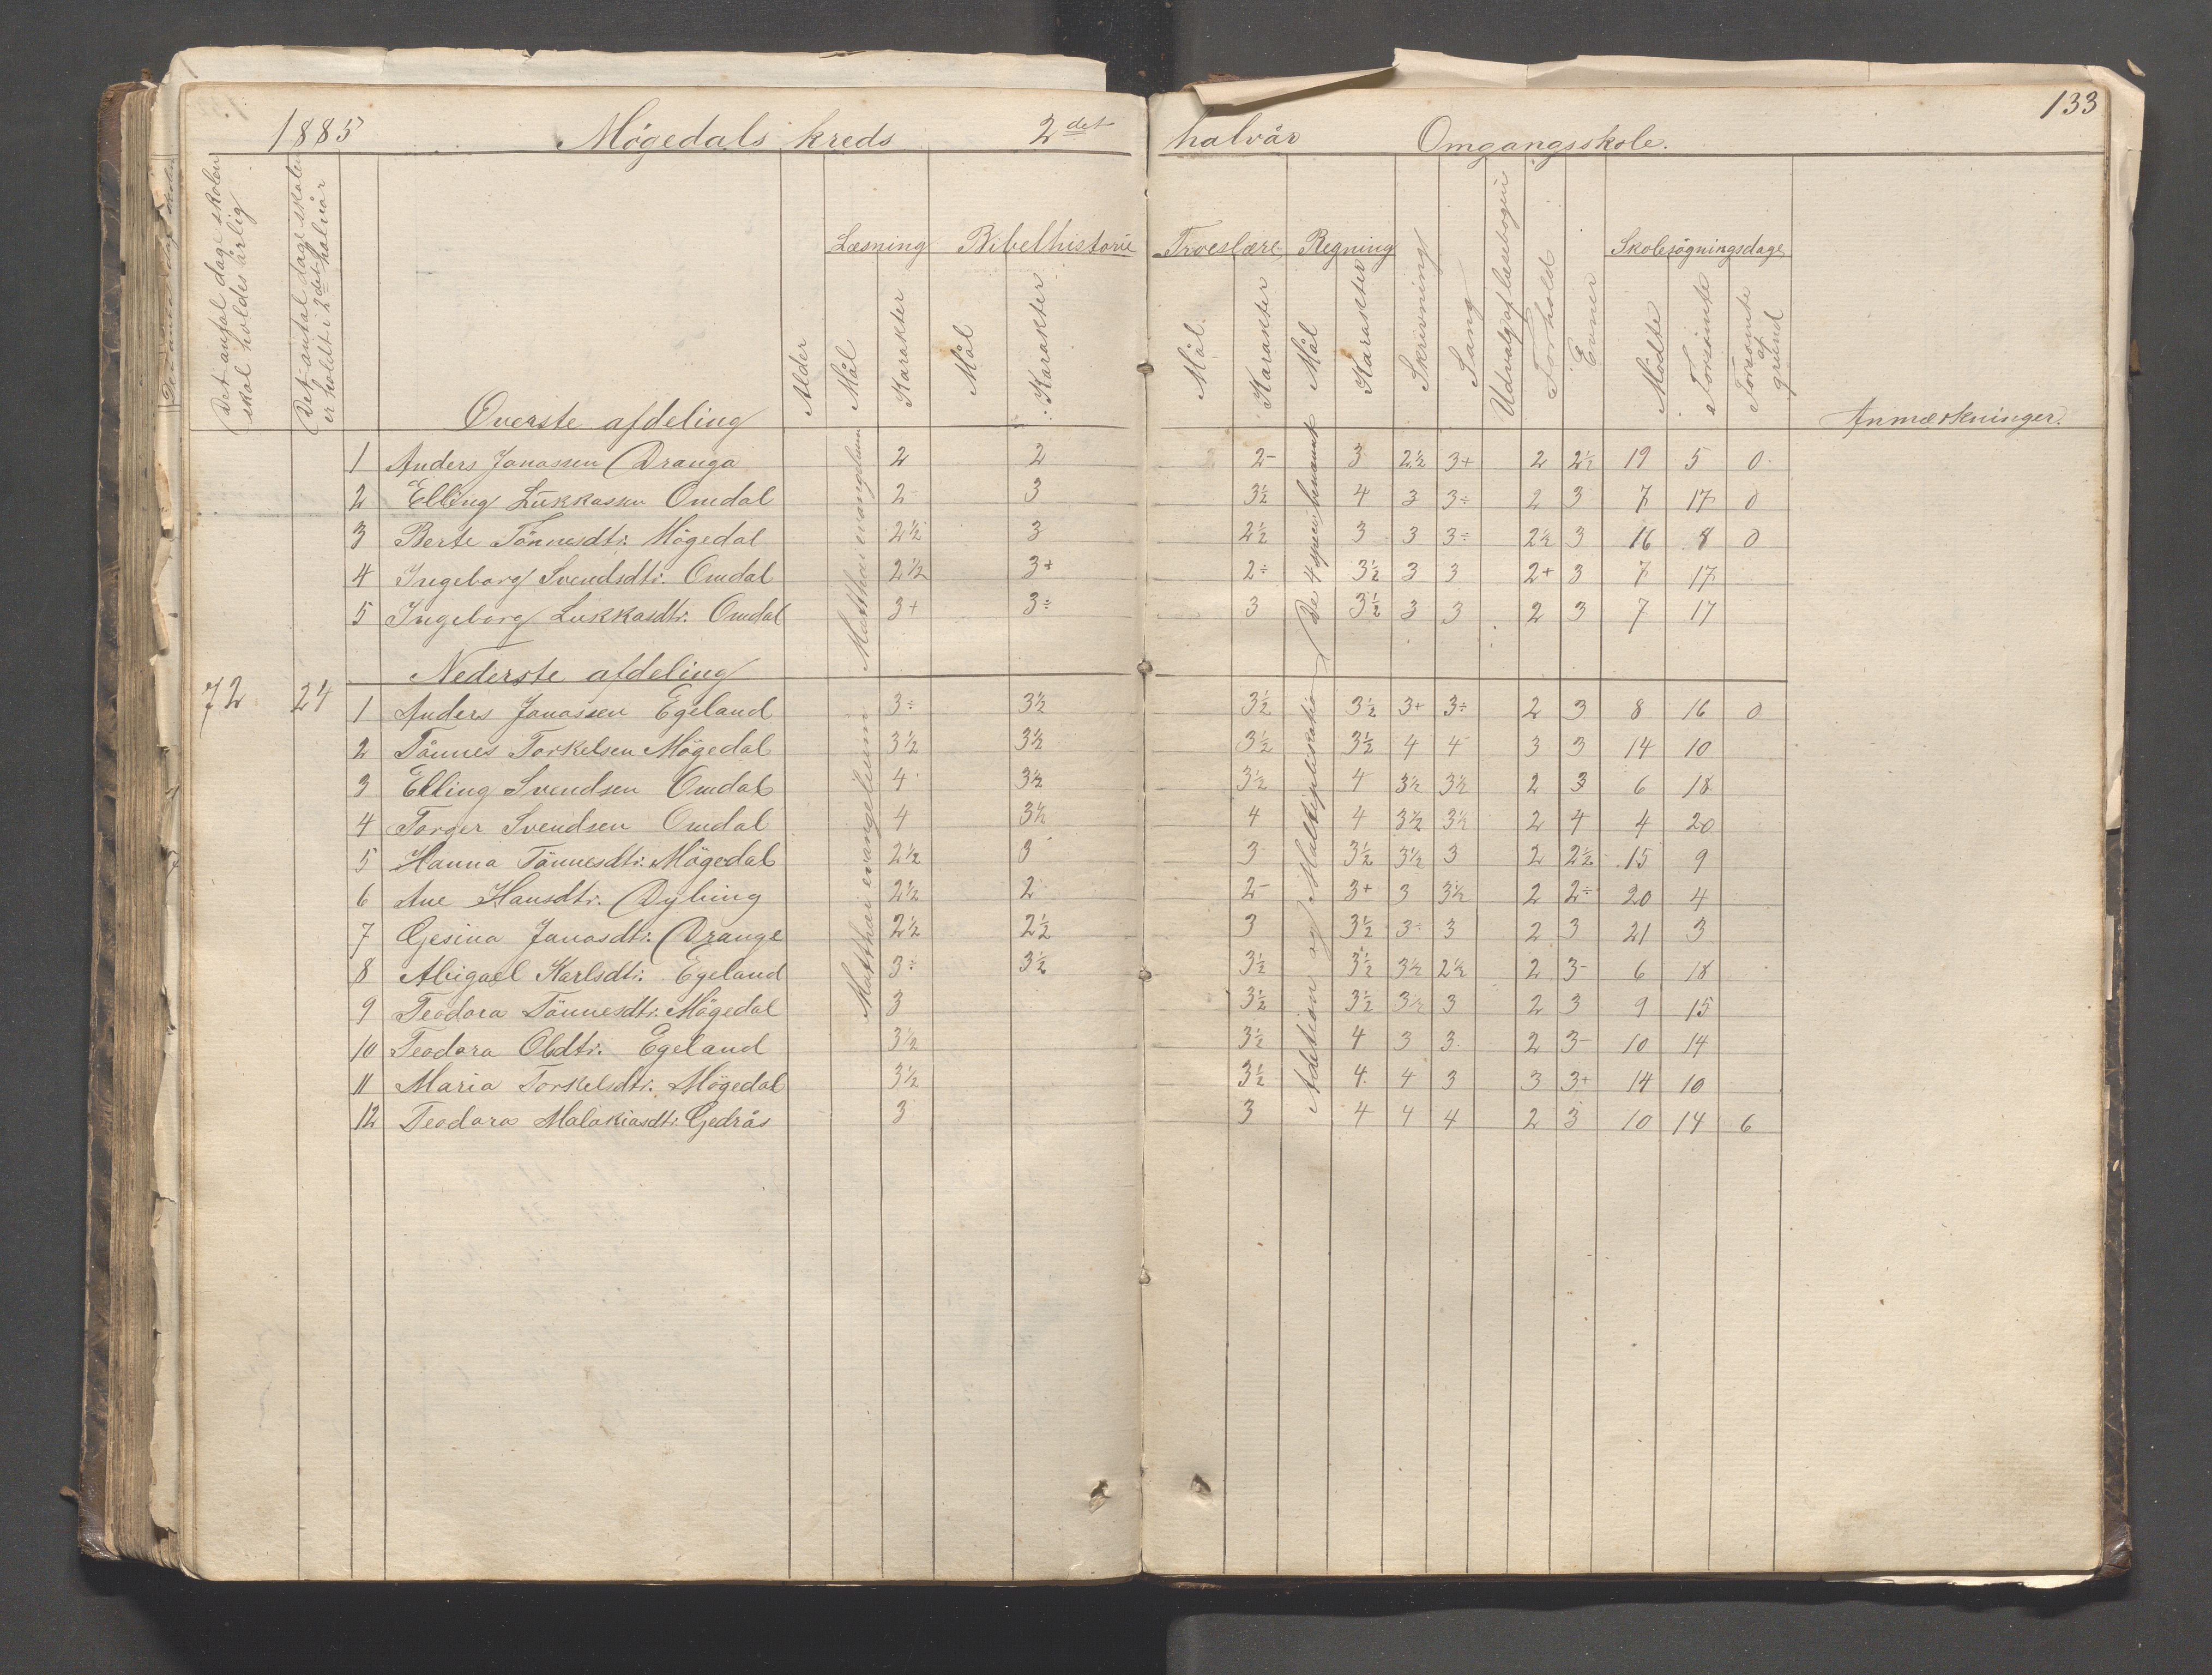 133
1885 Mögedals kreds 2det halvår Omgangsskole.
Det antal dage skolen skal holdes årlig
Det antal dage skolen er holdt i 2det halvår
Overste afdeling
Alder
Læsning Mål Karakter
Bibelhistorie Mål Karakter
Troeslære Mål Karakter
Regning Mål Karakter
Skrivning Sang Udvalg af læsebogen Forhold Evner
Skolesøgningsdage Mödte Forsømte Forsømte af grund
Anmærkninger.
Matthæi evangelium
De 4 species benævnt
1 Anders Janassen Dranga 2 2 2- 3 2½ 3+ 2 2½ 19 5 0
2 Elling Lukkassen Omdal 2 3 3½ 4 3 3÷ 2 3 7 17 0
3 Berte Tönnesdtr. Mögedal 2½ 3 2½ 3 3 3÷ 2½ 3 16 8 0
4 Ingeborg Svendsdtr. Omdal 2½ 3+ 2÷ 3½ 3 3 2+ 3 7 17
5 Ingeborg Lukkasdtr. Omdal 3+ 3÷ 3 3½ 3 3 2 3 7 17
Nederste afdeling
72 24
Matthæi evangelium
Addition og Multiplikation
1 Anders Janassen Egeland 3÷ 3½ 3½ 3½ 3+ 3÷ 2 3 8 16 0
2 Tönnes Torkelsen Mögedal 3½ 3½ 3½ 3½ 4 4 3 3 14 10
3 Elling Svendsen Omdal 4 3½ 3½ 4 3½ 3½ 2 3 6 18
4 Torger Svendsen Omdal 4 3½ 4 4 3½ 3½ 2 4 4 20
5 Hanna Tönnesdtr. Mögedal 2½ 3 3 3½ 3½ 3 2 2½ 15 9
6 Ane Hansdtr. Dybing 2½ 2 2- 3+ 3 3½ 2 2÷ 20 4
7 Gesina Janasdtr. Drange 2½ 2½ 3 3½ 3÷ 3 2 3 21 3
8 Abigael Karlsdtr. Egeland 3÷ 3½ 3½ 3½ 3½ 2½ 2 3- 6 18
9 Teodora Tönnesdtr. Mögedal 3 3½ 3½ 3½ 3 2 3 9 15
10 Teodora Oldtr. Egeland 3½ 3½ 4 3 3 2 3- 10 14
11 Maria Torkelsdtr. Mögedal 3½ 3½ 4 4 3 3 3+ 14 10
12 Teodara Malakiasdtr. Gedrås 3 3 4 4 4 2 3 10 14 6